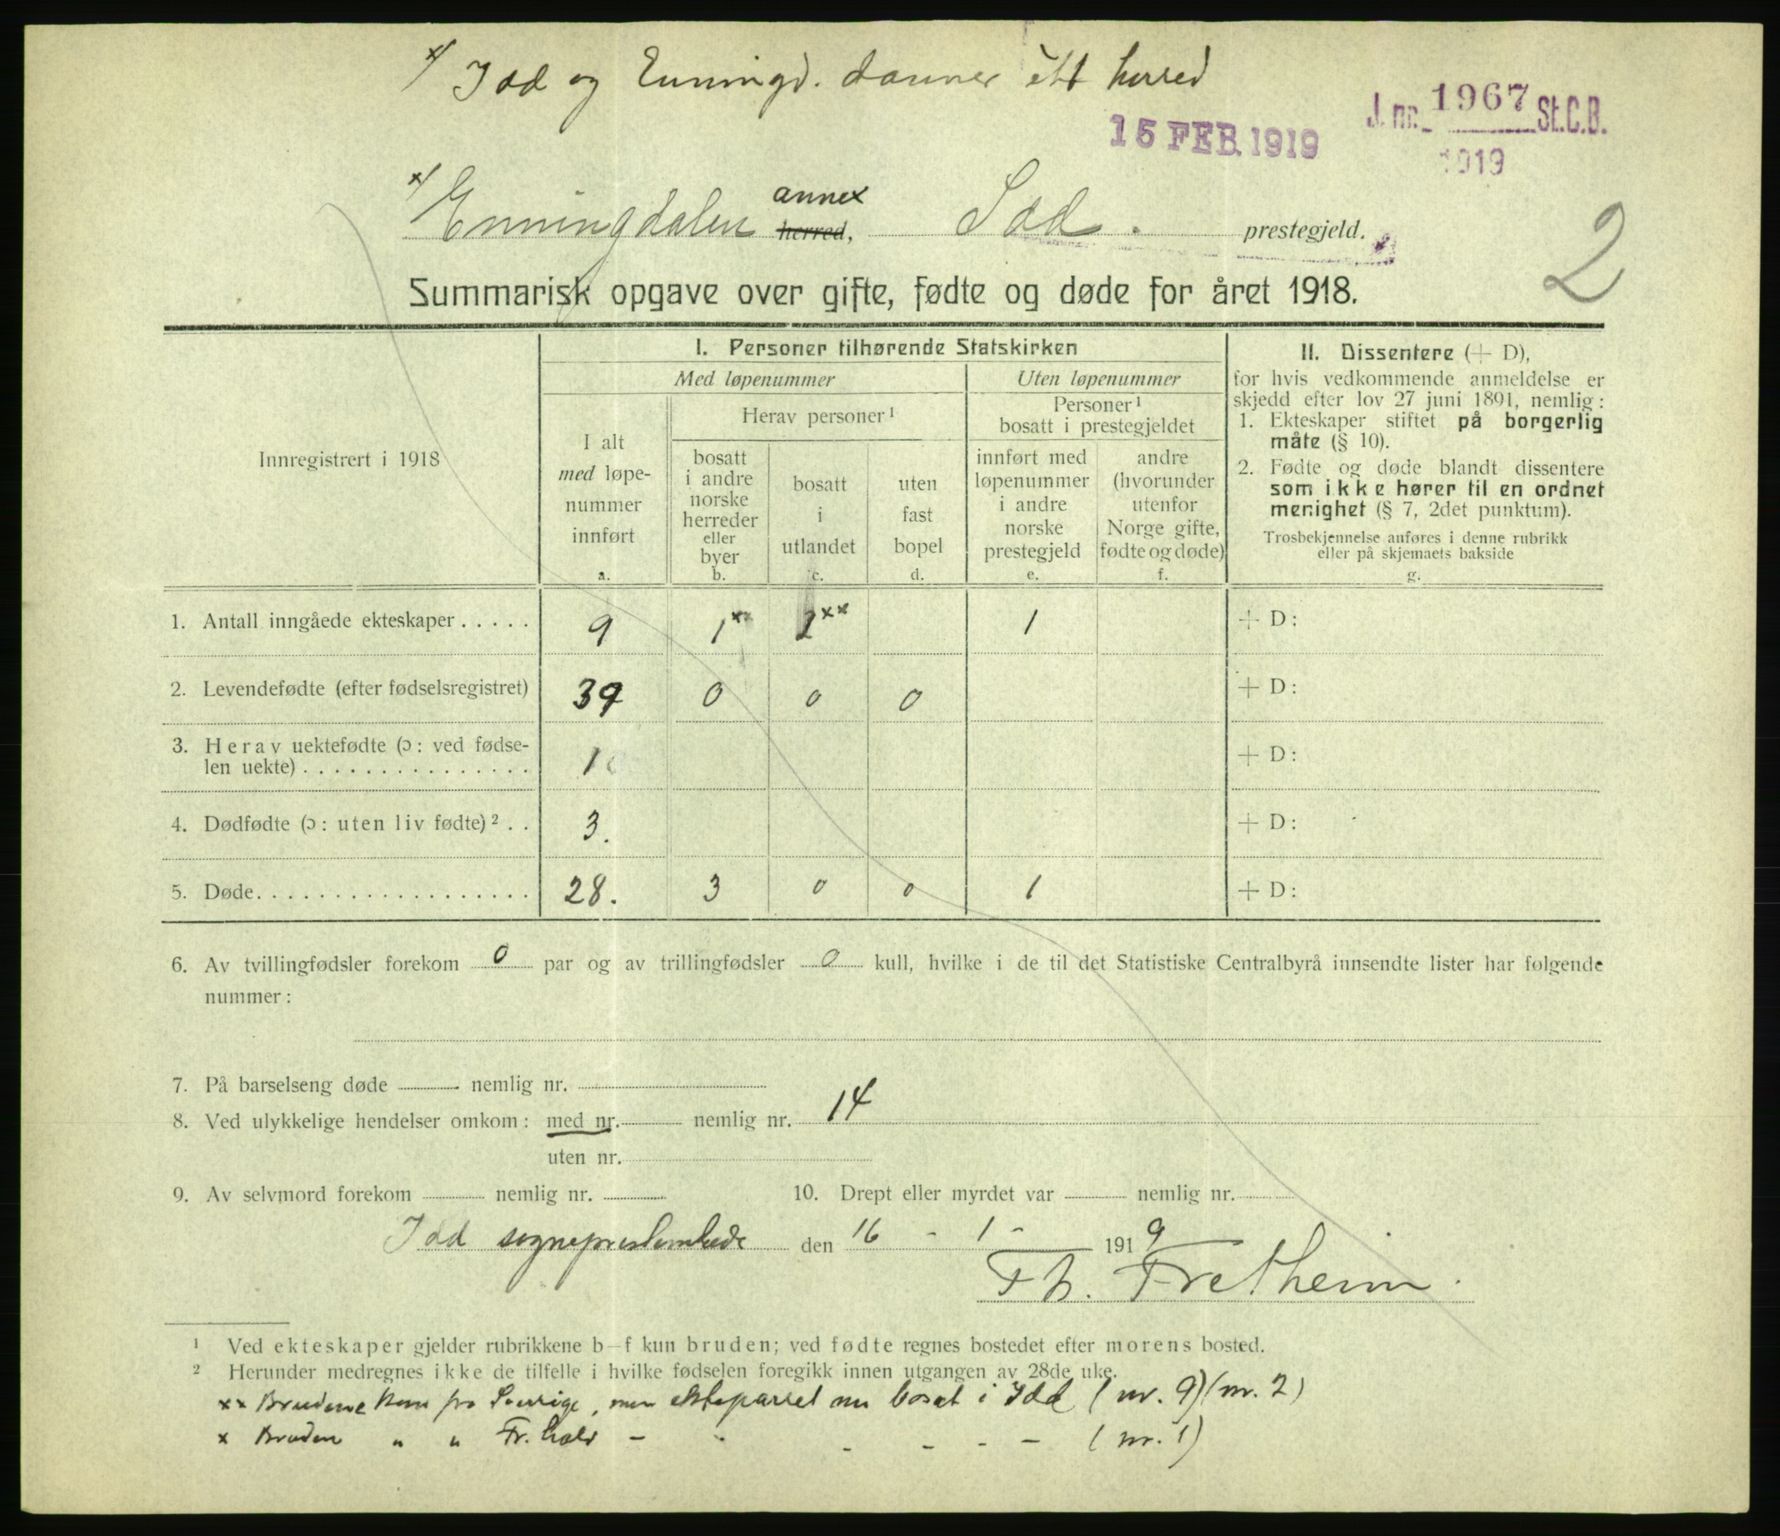 x/ Idd og Enningd. danner ett herred
15 FEB. 1919
J. nr. 1967 St.C.B.
1919
x/ Enningdalen annex herred, Idd. prestegjeld.
2
Summarisk opgave over gifte, fødte og døde for året 1918.
Innregistrert i 1918
I. Personer tilhørende Statskirken
Med løpenummer
Uten løpenummer
I alt
med løpe-
nummer
innført
a.
Herav personer¹
bosatt
i andre
norske
herreder
eller
byer
b.
bosatt
i
utlandet
c.
uten
fast
bopel
d.
Personer¹
bosatt i prestegjeldet
innført med
løpenummer
i andre
norske
prestegjeld
e.
andre
(hvorunder
utenfor
Norge gifte,
fødte og døde)
f.
II. Dissentere (+ D),
for hvis vedkommende anmeldelse er
skjedd efter lov 27 juni 1891, nemlig:
1. Ekteskaper stiftet på borgerlig
måte (§ 10).
2. Fødte og døde blandt dissentere
som ikke hører til en ordnet
menighet (§ 7, 2det punktum).
Trosbekjennelse anføres i denne rubrikk
eller på skjemaets bakside
g.
1. Antall inngåede ekteskaper . . . . . 9 1ˣ 2ˣˣ 1 + D:
2. Levendefødte (efter fødselsregistret) 39 0 0 0 + D:
3. Herav uektefødte (ɔ: ved fødse-
len uekte) . . . . . . . . . . . . . . . 1 + D:
4. Dødfødte (ɔ: uten liv fødte)² . . 3. + D:
5. Døde. . . . . . . . . . . . . . . . . . 28. 3 0 0 1 + D:
6. Av tvillingfødsler forekom 0 par og av trillingfødsler 0 kull, hvilke i de til det Statistiske Centralbyrå innsendte lister har følgende
nummer:
7. På barselseng døde nemlig nr.
8. Ved ulykkelige hendelser omkom: med nr. nemlig nr. 14
uten nr.
9. Av selvmord forekom nemlig nr. 10. Drept eller myrdet var nemlig nr.
Idd sogneprestembede den 16 - 1 - 1919
Th. Fretheim.
¹ Ved ekteskaper gjelder rubrikkene b–f kun bruden; ved fødte regnes bostedet efter morens bosted.
² Herunder medregnes ikke de tilfelle i hvilke fødselen foregikk innen utgangen av 28de uke.
xx Brudene kom fra Sverige, men ekteparret nu bosat i Idd (nr. 9) (nr. 2)
x Bruden " " Fr.hald - - - - - - (nr. 1)